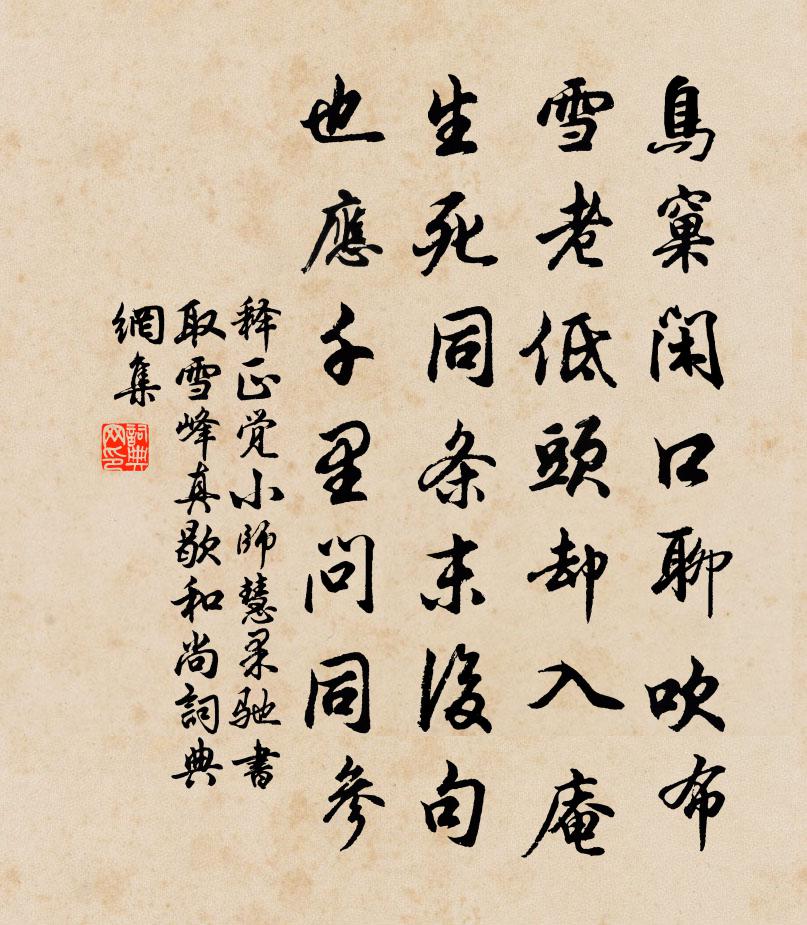 鳥窠閑口聊吹布
雪老低頭却入庵
生死同条末後句
也應千里問同參
释正觉小師慧杲驰書
取雪峰真歇和尚詞典
網集
詞典網印